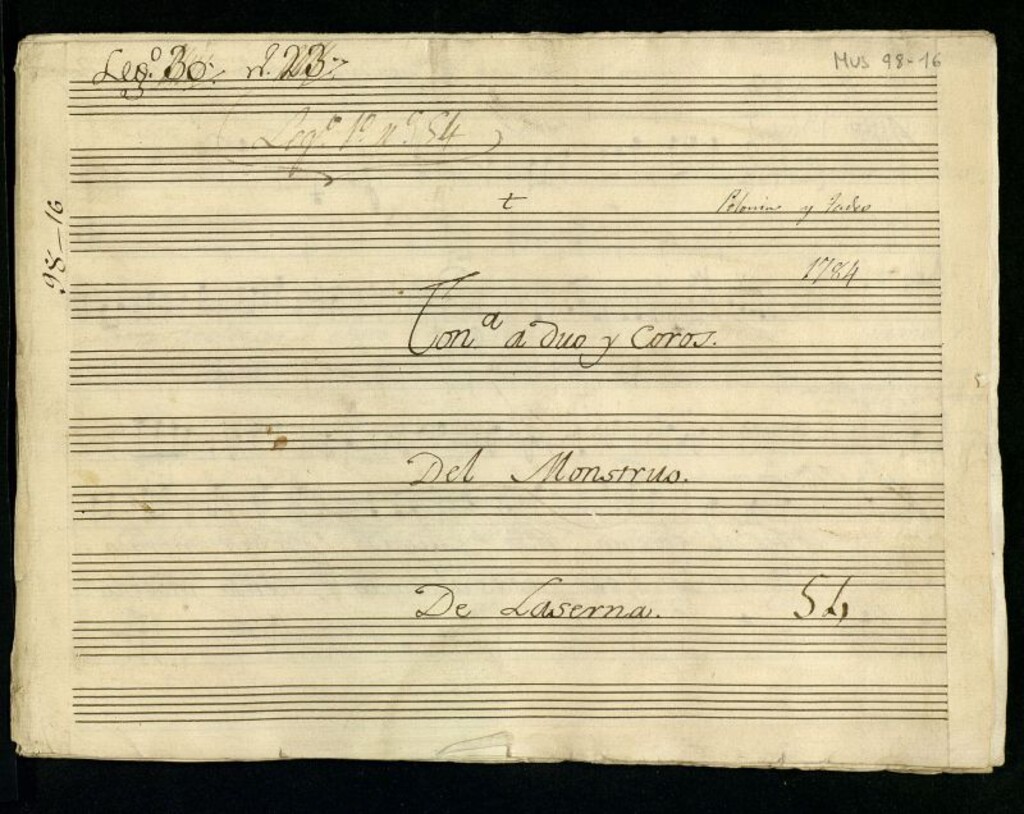 Leg.º 36. nº. 23.
MUS 98-16
Legº 1º nº 54
98-16
t
Polonia y Tadeo
1784
Ton.ª a Duo y Coros.
Del Monstruo.
De Laserna.
54